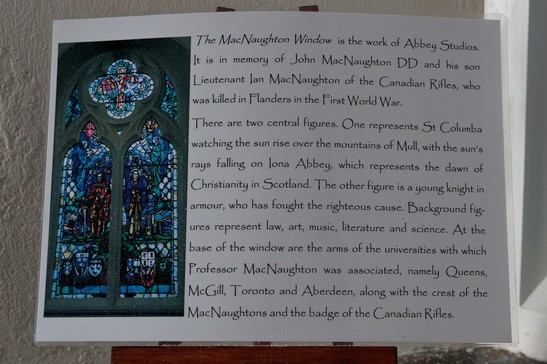 The MacNaughton Window is the work of Abbey Studios.
It is in memory of John MacNaughton DD and his son
Lieutenant Ian MacNaughton of the Canadian Rifles, who
was killed in Flanders in the First World War.
There are two central figures. One represents St Columba
watching the sun rise over the mountains of Mull, with the sun's
rays falling on Iona Abbey, which represents the dawn of
Christianity in Scotland. The other figure is a young knight in
armour, who has fought the righteous cause. Background fig-
ures represent law, art, music, literature and science. At the
base of the window are the arms of the universities with which
Professor MacNaughton was associated, namely Queens,
McGill, Toronto and Aberdeen, along with the crest of the
MacNaughtons and the badge of the Canadian Rifles.